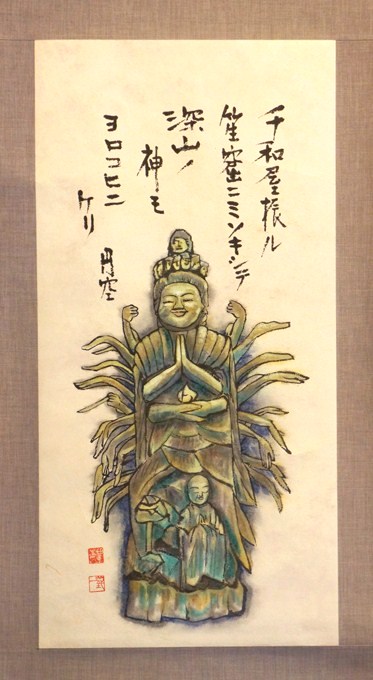 千和屋振ル
笙窟ニミソキシテ
深山ノ
神モ
ヨロコヒニ
ケリ
円空